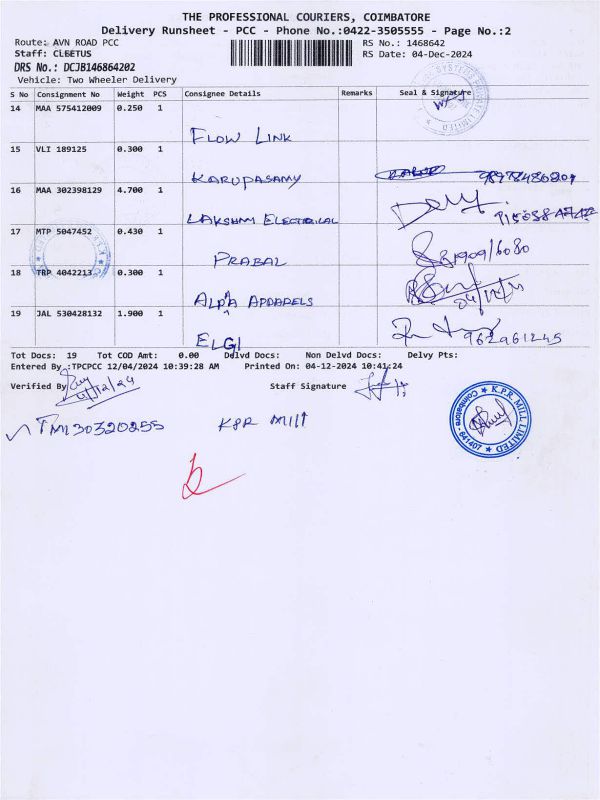 THE PROFESSIONAL COURIERS, COIMBATORE
Delivery Runsheet - PCC - Phone No.:0422-3505555 - Page No.:2
Route: AVN ROAD PCC RS No.: 1468642
Staff: CLEETUS RS Date: 04-Dec-2024
DRS No.: DCJB146864202
Vehicle: Two Wheeler Delivery
S No Consignment No Weight PCS Consignee Details Remarks Seal & Signature
14 MAA 575412009 0.250 1
FLOW LINK
15 VLI 189125 0.300 1
KARUPASAMY
16 MAA 302398129 4.700 1
LAKSHMI ELECTRICAL
17 MTP 5047452 0.430 1
PRABAL
18 TRP 4042213 0.300 1
ALPHA APPARELS
19 JAL 530428132 1.900 1
ELGI 962961245
Tot Docs: 19 Tot COD Amt: 0.00 Delvd Docs: Non Delvd Docs: Delvy Pts:
Entered By :TPCPCC 12/04/2024 10:39:28 AM Printed On: 04-12-2024 10:41:24
Verified By Staff Signature
4/12/24
TMI30320255 KPR MILL
K.P.R. MILL LIMITED
Coimbatore - 641407